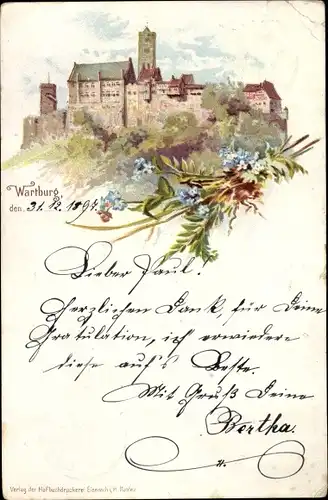 Wartburg
den 31.12.1897.
Lieber Paul!
Herzlichen Dank, für Deine
Gratulation, ich erwiedere
diese auf's Beste.
Mit Gruß Deine
Bertha.
Verlag der Hofbuchdruckerei Eisenach i. H. Kahle